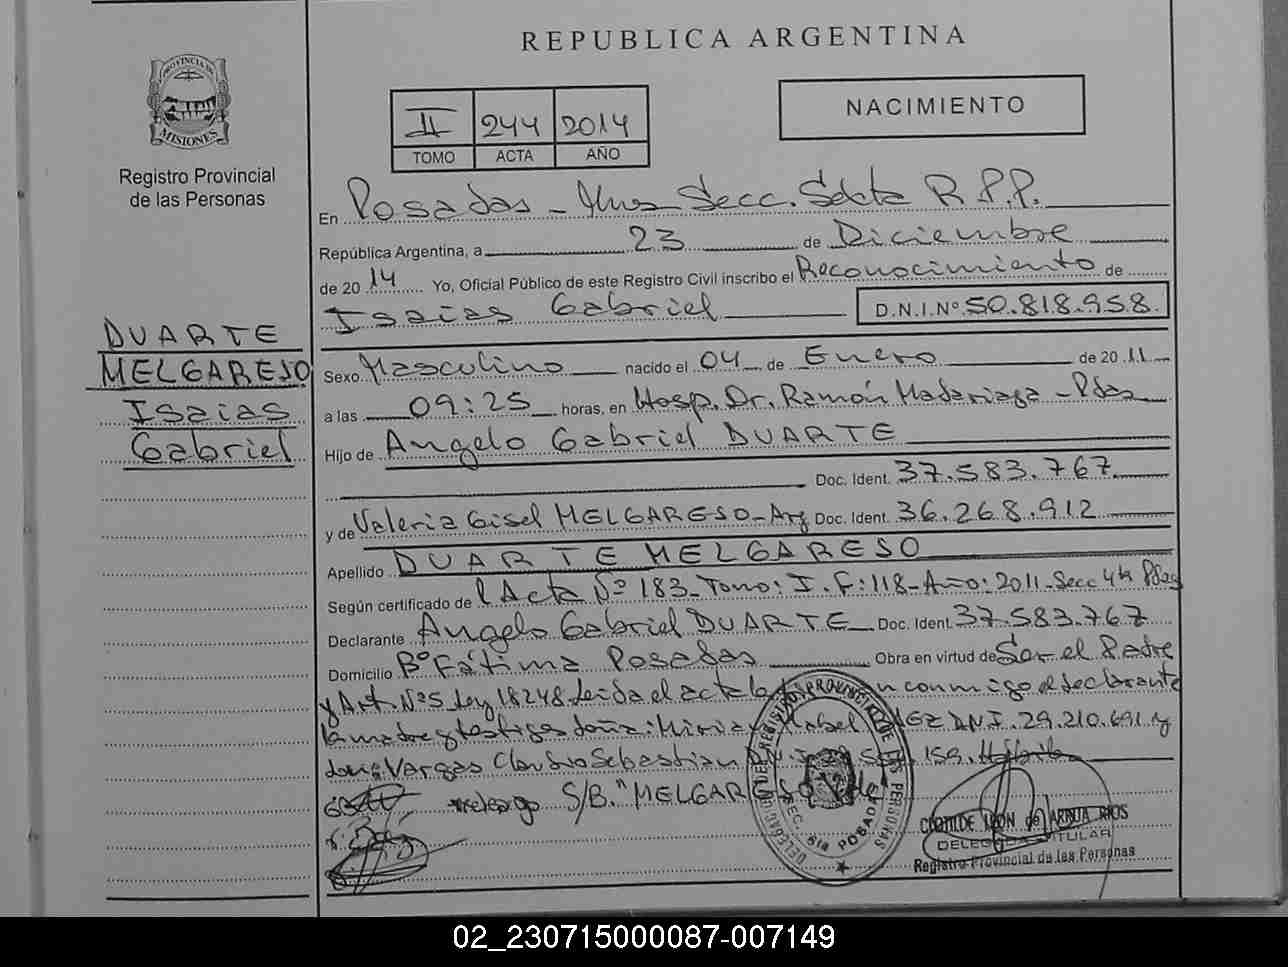 REPUBLICA ARGENTINA
PROVINCIA DE
MISIONES
Registro Provincial
de las Personas
II 244 2014
TOMO ACTA AÑO
NACIMIENTO
En Posadas - Mnes Secc. Sexta R.P.P.
República Argentina, a 23 de Diciembre
de 2014 Yo, Oficial Público de este Registro Civil inscribo el Reconocimiento de
Isaias Gabriel D.N.I.Nº 50.818.958
DUARTE
MELGARESO
Isaias
Gabriel
Sexo Masculino nacido el 04 de Enero de 2011
a las 09:25 horas, en Hosp. Dr. Ramón Madariaga - Pdas
Hijo de Angelo Gabriel DUARTE
Doc. Ident. 37.583.767
y de Valeria Gisel MELGARESO - Arg Doc. Ident. 36.268.912
Apellido DUARTE MELGARESO
Según certificado de l Acta Nº 183 - Tomo: I. F: 118 - Año: 2011 - Secc 4ta Pdas
Declarante Angelo Gabriel DUARTE Doc. Ident. 37.583.767
Domicilio Bº Fátima Posadas Obra en virtud de Ser el Padre
y Art. Nº 5 Ley 18248. Leida el acta la n conmigo el declarante
la madre y testigos doña: Mirian DNI. 29.210.691 y
Vargas Claudio Sebastian 159.
S/B. "MELGARESO" Vale
DELEGACION DE REGISTRO PROVINCIAL DE LAS PERSONAS
SEC. 6ta POSADAS
CLOTILDE LEON de ARRUA RIOS
DELEGADA TITULAR
Registro Provincial de las Personas
02_230715000087-007149